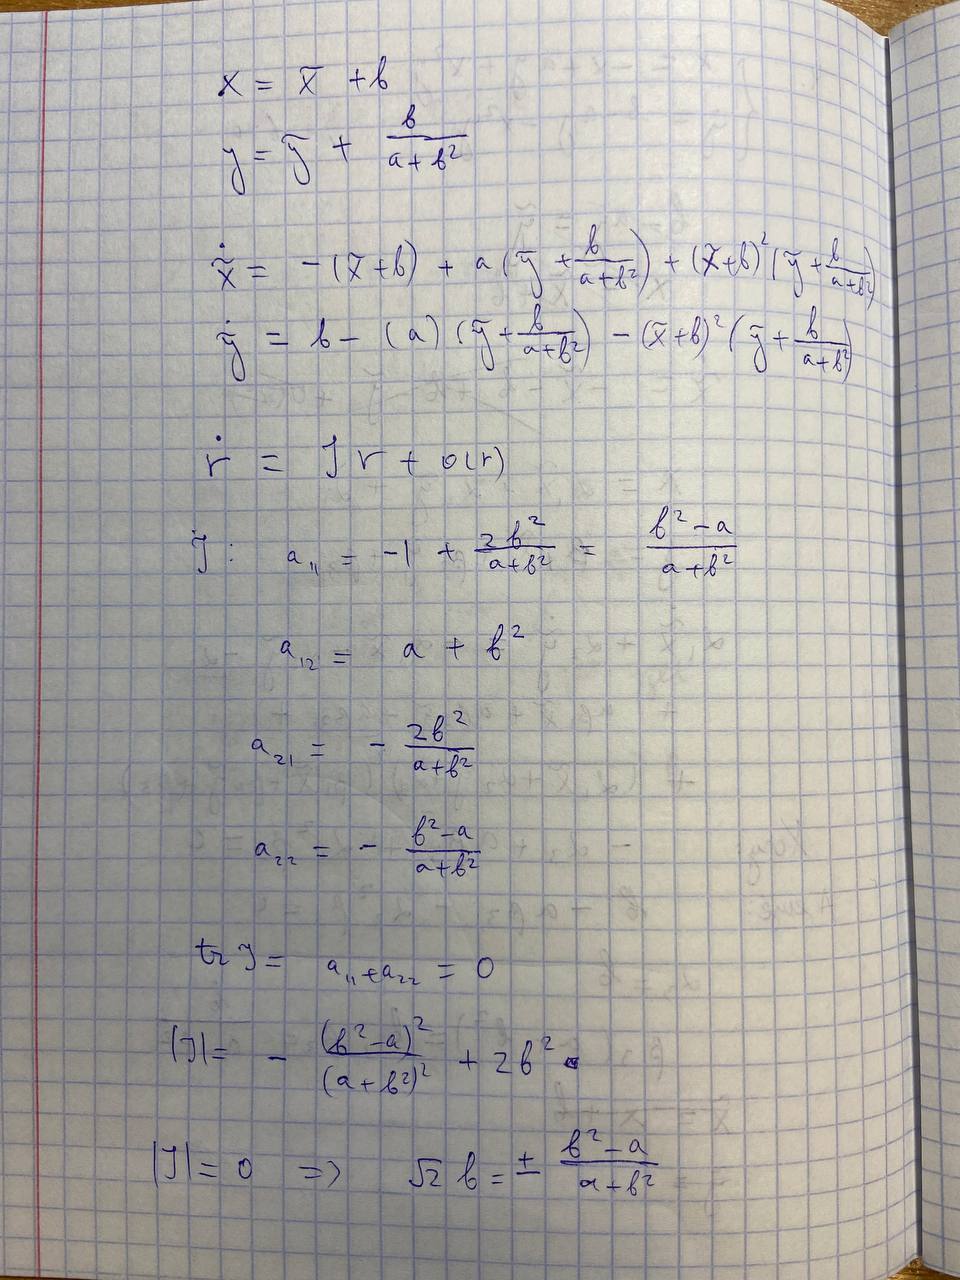 x = x̃ + b
y = ỹ + b/(a+b²)
ẋ̃ = -(x̃+b) + a(ỹ + b/(a+b²)) + (x̃+b)²(ỹ + b/(a+b²))
ẏ̃ = b - (a)(ỹ + b/(a+b²)) - (x̃+b)²(ỹ + b/(a+b²))
ṙ = J r + o(r)
J: a₁₁ = -1 + 2b²/(a+b²) = (b²-a)/(a+b²)
a₁₂ = a + b²
a₂₁ = - 2b²/(a+b²)
a₂₂ = - (b²-a)/(a+b²)
tr J = a₁₁+a₂₂ = 0
|J| = - (b²-a)²/(a+b²)² + 2b²
|J| = 0 => √2 b = ± (b²-a)/(a+b²)